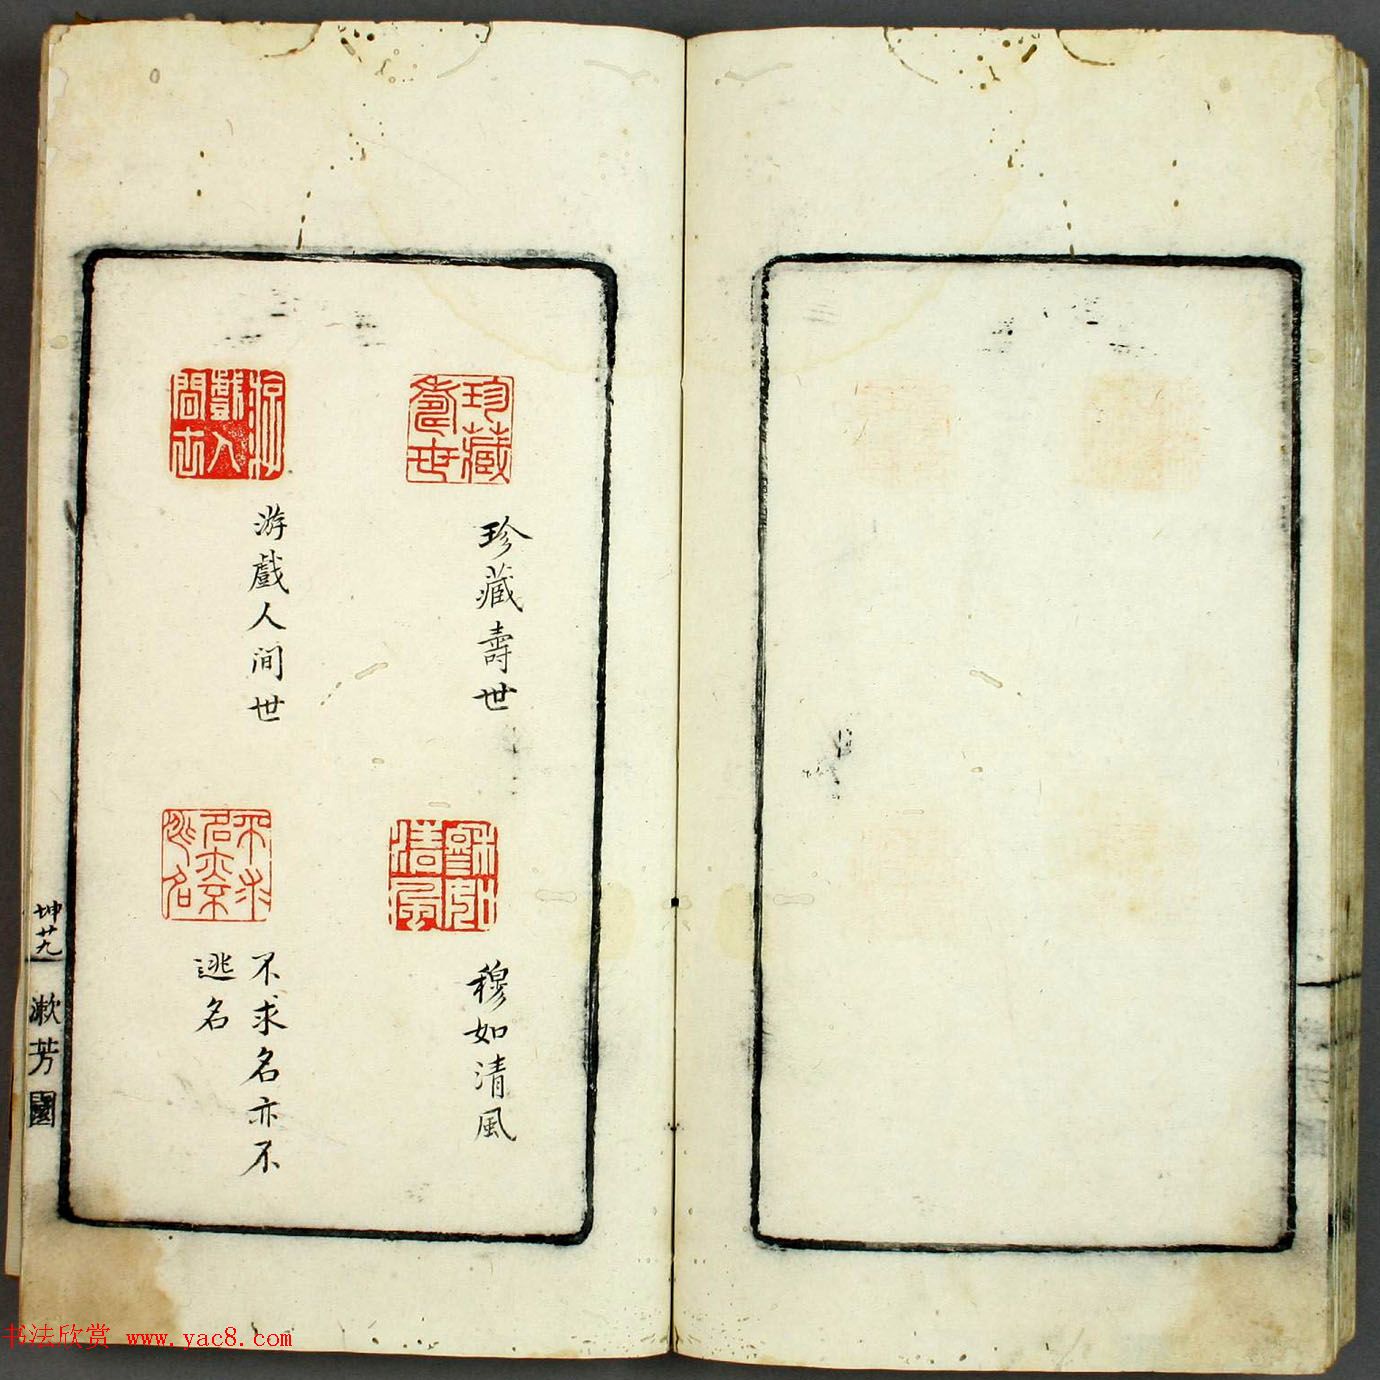 珍藏壽世
珍藏壽世
穆如清風
穆如清風
游戲人間世
游戲人间世
不求名亦不逃名
不求名亦不
逃名
坤廿九
漱芳園
书法欣赏 www.yac8.com